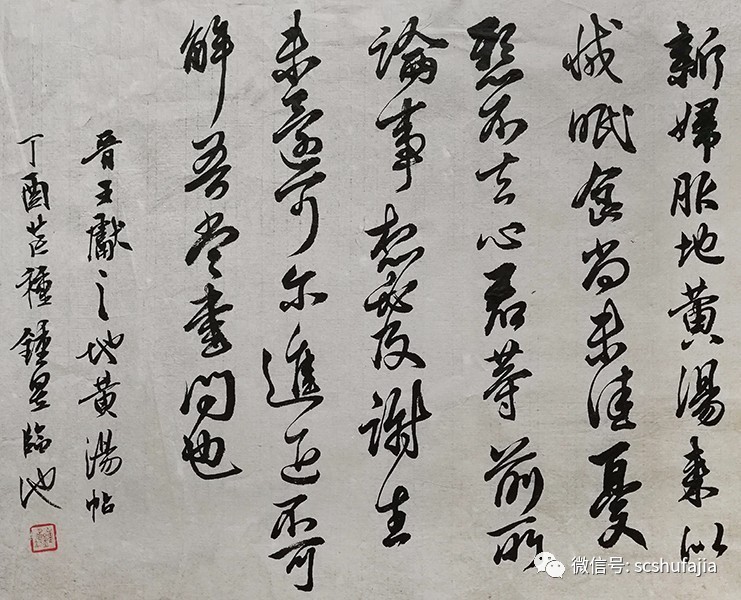 新婦服地黄湯來似
減眠食尚未佳憂
懸不去心君等前所
論事想必及謝生
未還可尔進退不可
解吾當書問也
晋王獻之地黄湯帖
丁酉芒種鍾星臨池
微信号: scshufajia